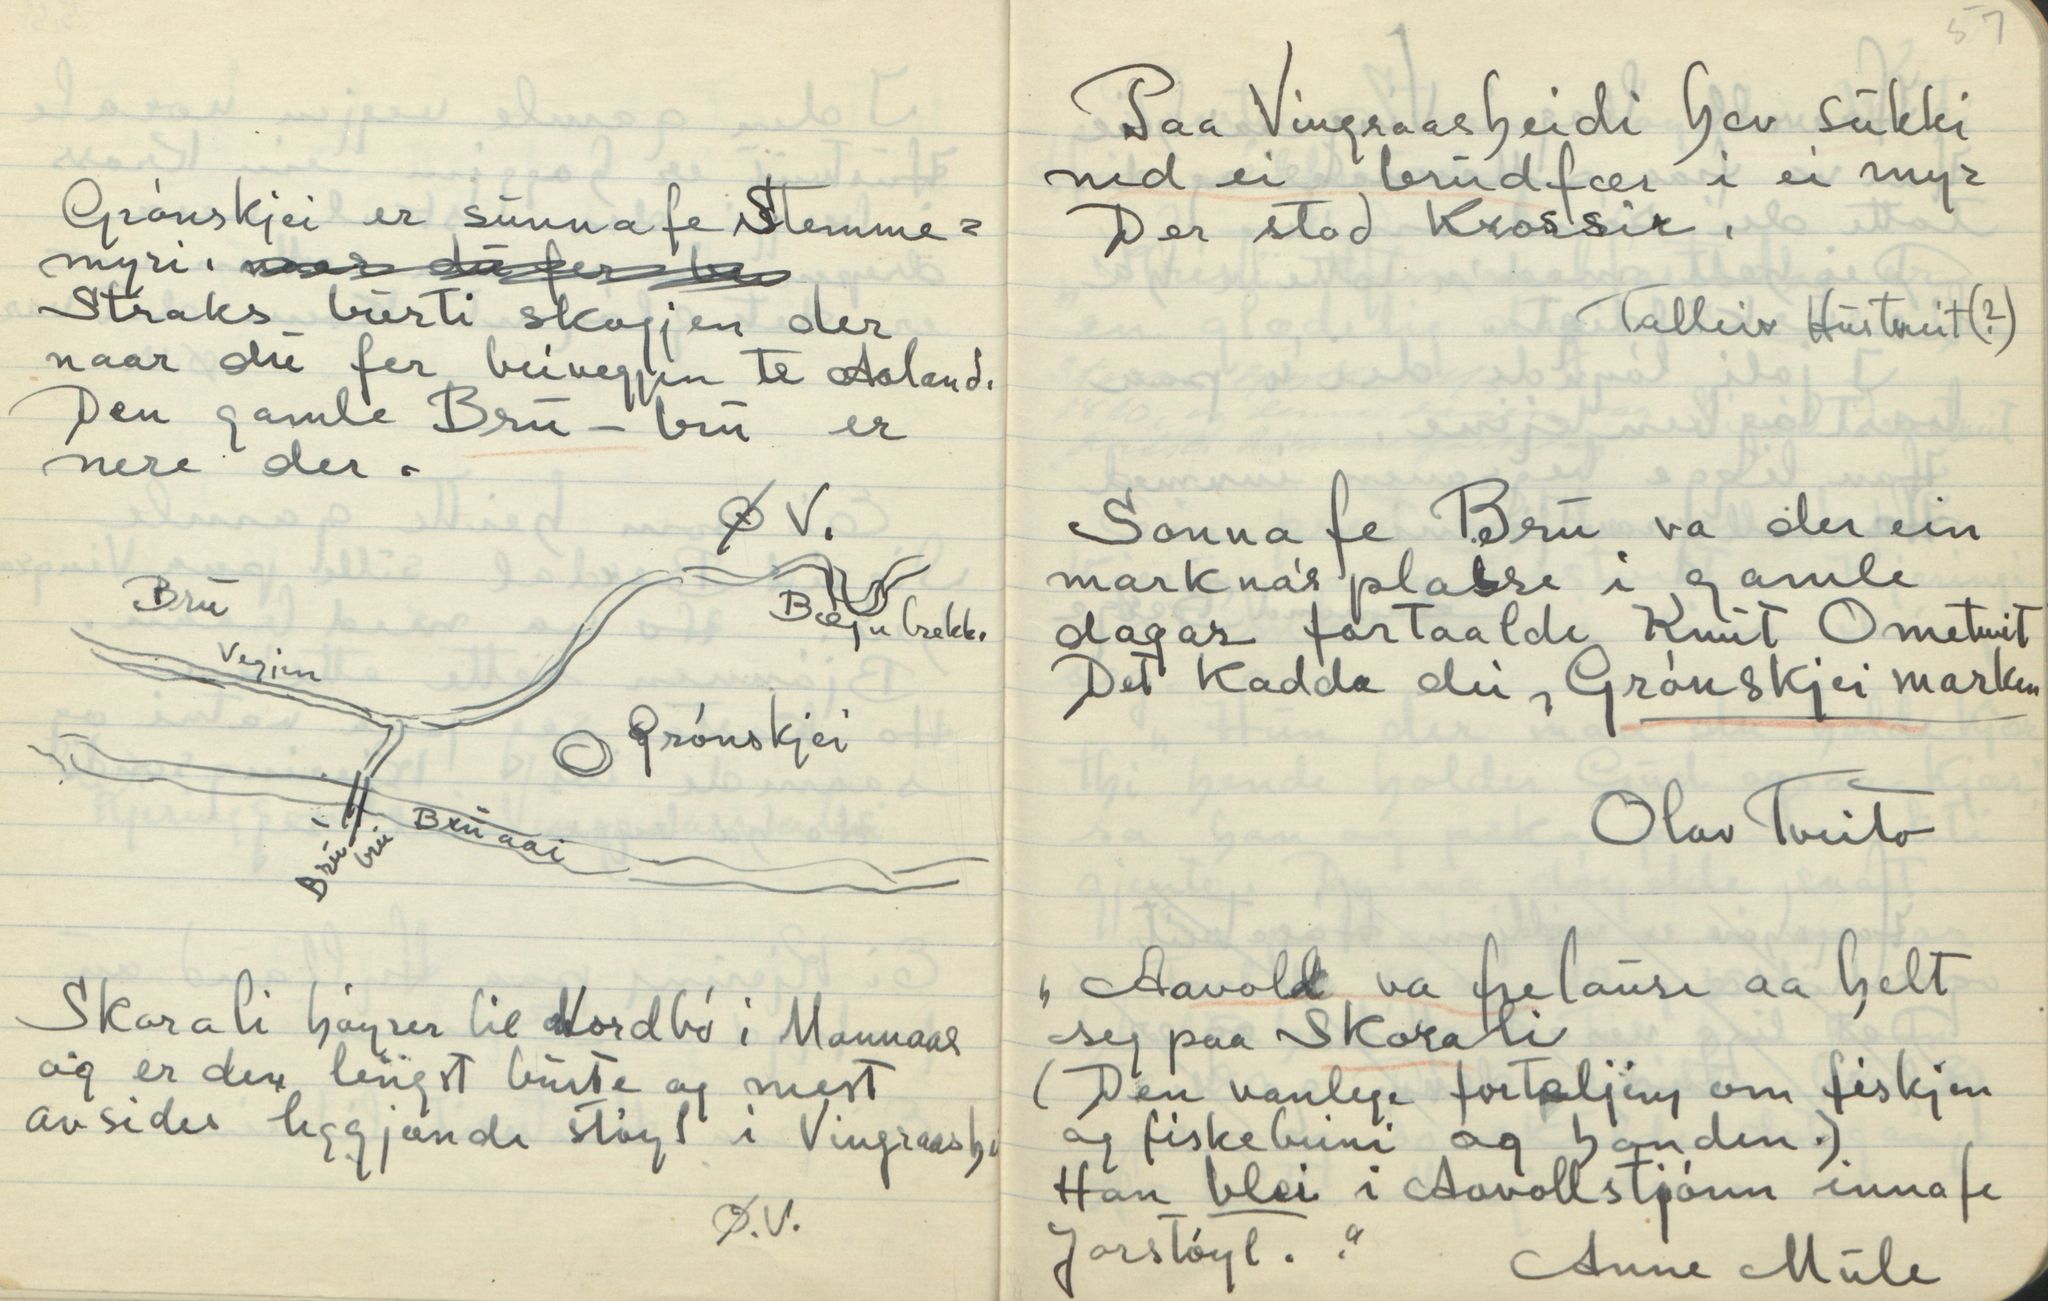 Grónskjei er sünnafe Stemme=
myri.
Straks bürti skogjen der
naar dü fer beivegjen te Aaland.
Den gamle Brü – brü er
nere der.
Ø V.
Brü
Vegjen
Bøgjubrekk.
Grónskjei
Brüaai
Brü
brü
Skorali høyrer til Nordbó i Mannaas
og er den lengst burte og mest
avsides liggjande støyl i Vingraash
Ø.V.
57
Paa Vingraasheidi hev sükki
ned ei brüdfær i ei myr
Der stod Krossir.
Talleiv Hüstveit(?)
Sonnafe Brü va der ein
marknásplasse i gamle
dagar fortaalde Knüt Ometveit
Det kadda dü „Grónskjeimarken
Olav Tveito
„Aavold va frelause aa helt
seg paa Skorali
(Den vanlege forteljing om fiskjen
og fiskebeini og handen.)
Han blei i Aavollstjónn innafe
Jorstøyl."
Anne Müle